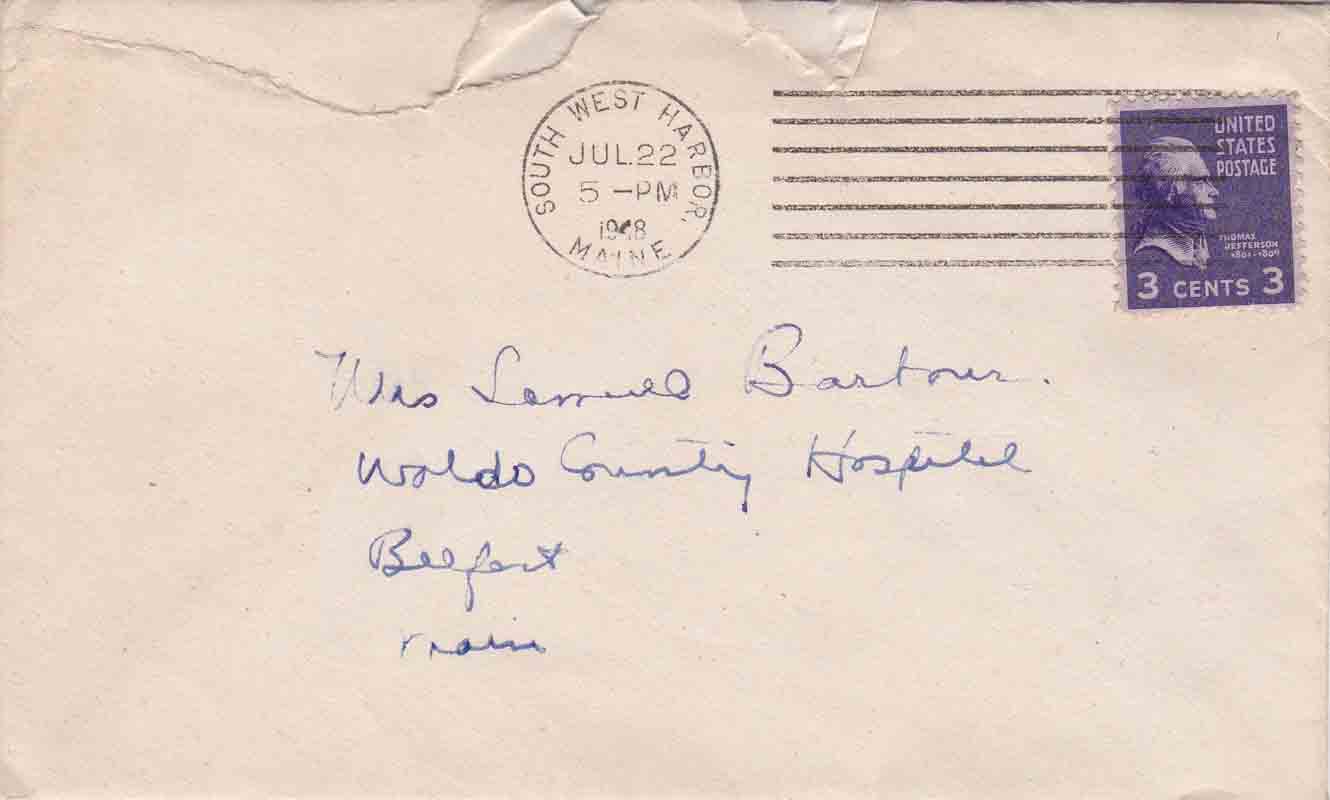 SOUTH WEST HARBOR,
JUL 22
5 -PM
1948
MAINE
UNITED
STATES
POSTAGE
THOMAS
JEFFERSON
1801-1809
3 CENTS 3
Mrs Samuel Barbour.
Waldo County Hospital
Belfast
Maine